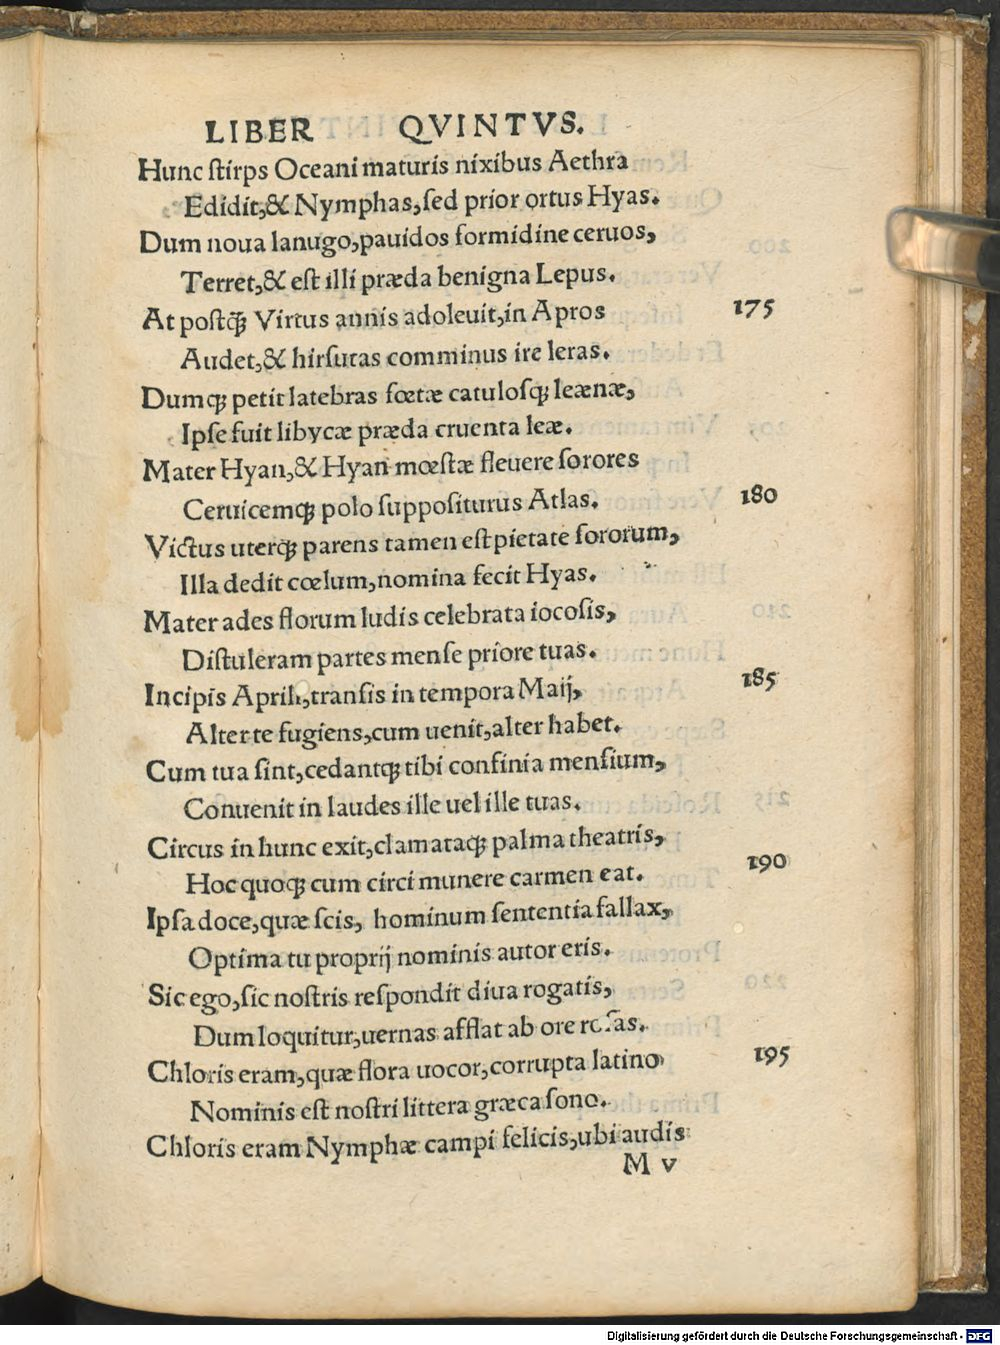 LIBER QVINTVS.
Hunc ſtirps Oceani maturis nixibus Aethra
Edidit,& Nymphas,ſed prior ortus Hyas.
Dum noua lanugo,pauidos formidine ceruos,
Terret,& eſt illi præda benigna Lepus.
At poſtꝙ̃ Virtus annis adoleuit,in Apros 175
Audet,& hirſutas comminus ire leras.
Dumqꝫ petit latebras fœtæ catuloſqꝫ leænæ,
Ipſe fuit libycæ præda cruenta leæ.
Mater Hyan,& Hyan mœſtæ fleuere ſorores
Ceruicemqꝫ polo ſuppoſiturus Atlas. 180
Victus uterqꝫ parens tamen eſt pietate ſororum,
Illa dedit cœlum,nomina fecit Hyas.
Mater ades florum ludis celebrata iocoſis,
Diſtuleram partes menſe priore tuas.
Incipis Aprili,tranſis in tempora Maij, 185
Alter te fugiens,cum uenit,alter habet.
Cum tua ſint,cedantqꝫ tibi confinia menſium,
Conuenit in laudes ille uel ille tuas.
Circus in hunc exit,clamataqꝫ palma theatris,
Hoc quoqꝫ cum circi munere carmen eat. 190
Ipſa doce,quæ ſcis, hominum ſententia fallax,
Optima tu proprij nominis autor eris.
Sic ego,ſic noſtris reſpondit diua rogatis,
Dum loquitur,uernas afflat ab ore roſas.
Chloris eram,quæ flora uocor,corrupta latino 195
Nominis eſt noſtri littera græca ſono.
Chloris eram Nymphæ campi felicis,ubi audis
M v
Digitalisierung gefördert durch die Deutsche Forschungsgemeinschaft - DFG